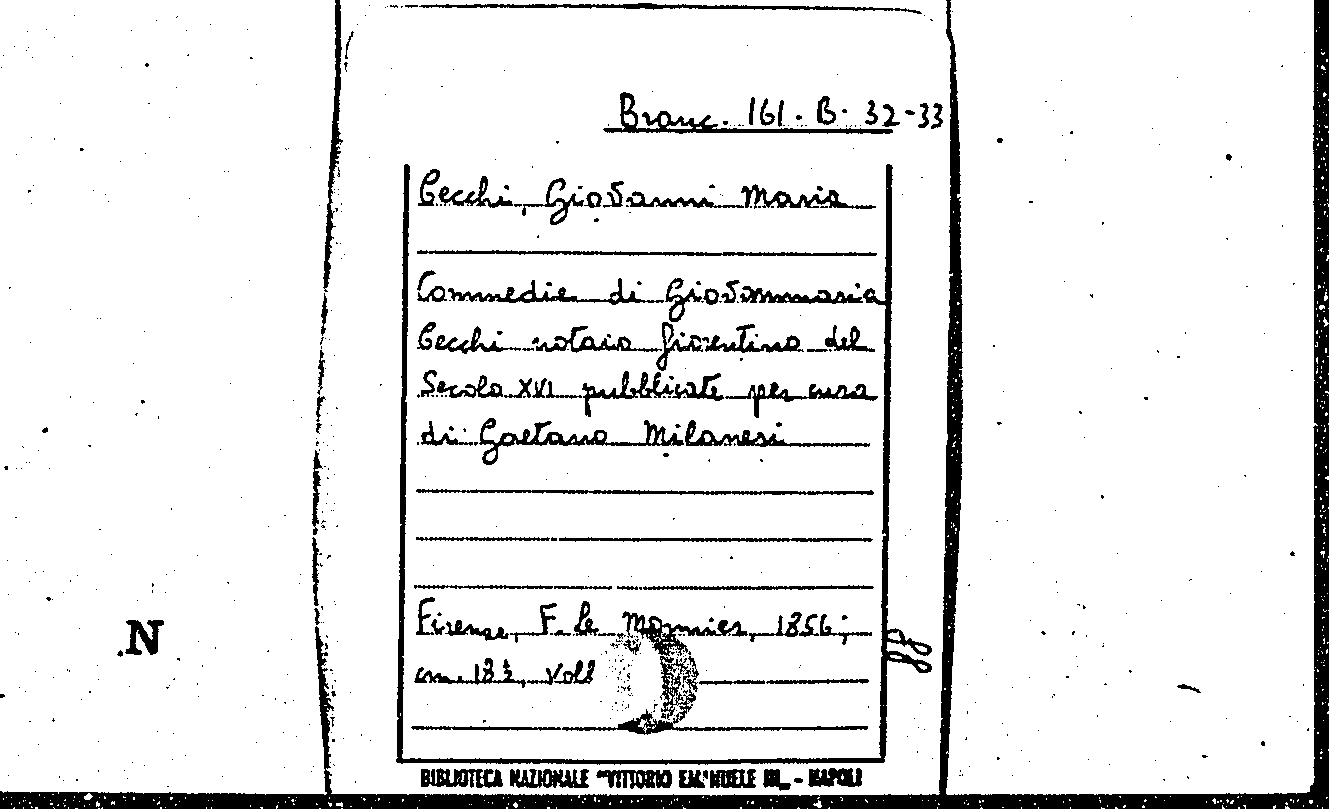 Branc. 161. B. 32-33
Cecchi, Giovanni Maria
Commedie di Giovanmaria
Cecchi notaio fiorentino del
Secolo XVI pubblicate per cura
di Gaetano Milanesi
Firenze, F. Le Monnier, 1856;
cm. 18½, voll
N
BIBLIOTECA NAZIONALE "VITTORIO EMANUELE III" - NAPOLI